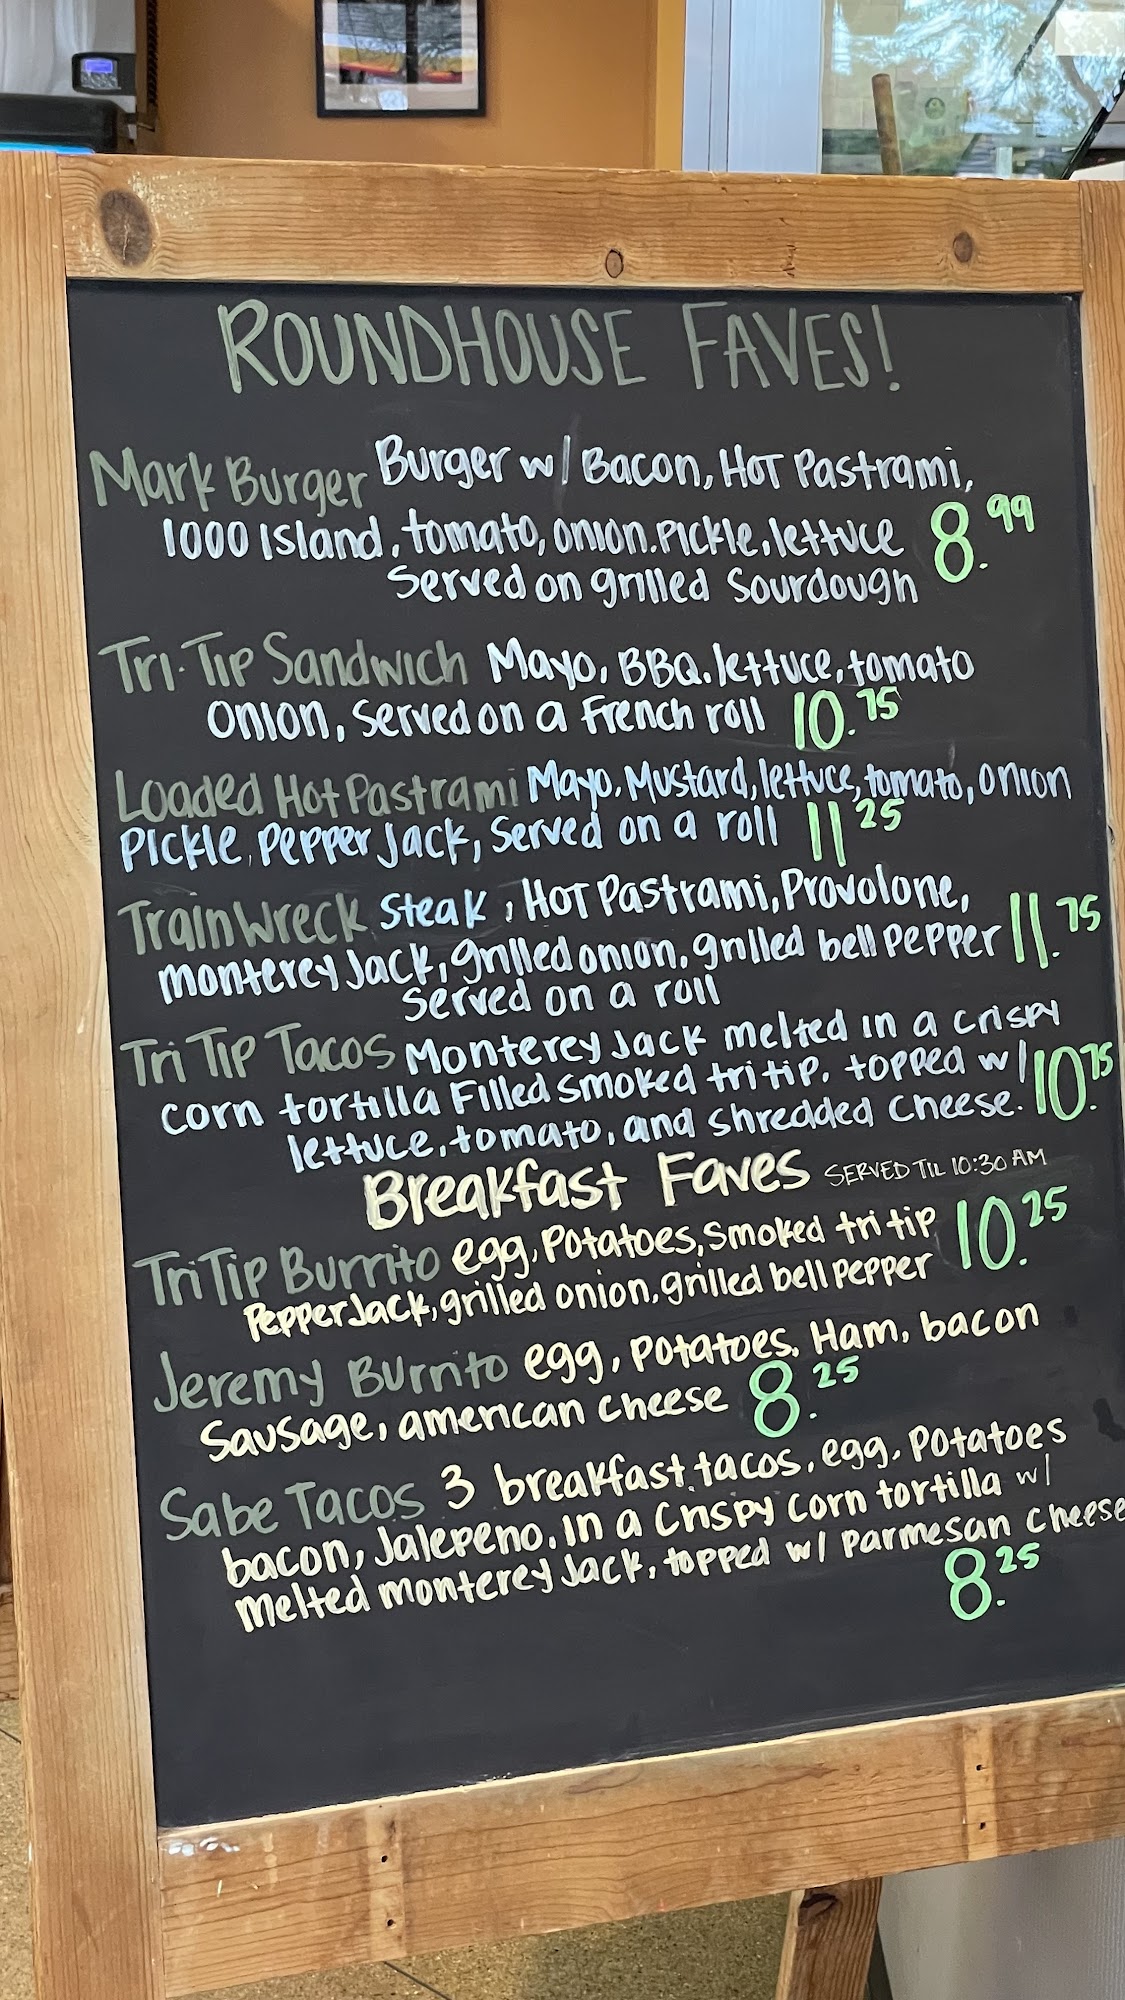 ROUNDHOUSE FAVES!
Mark Burger Burger w/ Bacon, Hot Pastrami,
1000 Island, tomato, onion. Pickle, lettuce 8.99
Served on grilled Sourdough
Tri-Tip Sandwich Mayo, BBQ, lettuce, tomato
Onion, Served on a French roll 10.75
Loaded Hot Pastrami Mayo, Mustard, lettuce, tomato, onion
Pickle, Pepper Jack, Served on a roll 11.25
TrainWreck Steak, Hot Pastrami, Provolone,
monterey Jack, grilled onion, grilled bell pepper 11.75
Served on a roll
Tri Tip Tacos Monterey Jack melted in a crispy
corn tortilla Filled smoked tri tip. topped w/ 10.75
lettuce, tomato, and shredded cheese.
Breakfast Faves SERVED TIL 10:30 AM
Tri Tip Burrito egg, Potatoes, smoked tri tip 10.25
PepperJack, grilled onion, grilled bell pepper
Jeremy Burrito egg, potatoes, Ham, bacon
Sausage, american cheese 8.25
Sabe Tacos 3 breakfast tacos, egg, Potatoes
bacon, Jalepeno, in a Crispy corn tortilla w/
melted monterey Jack, topped w/ parmesan cheese
8.25